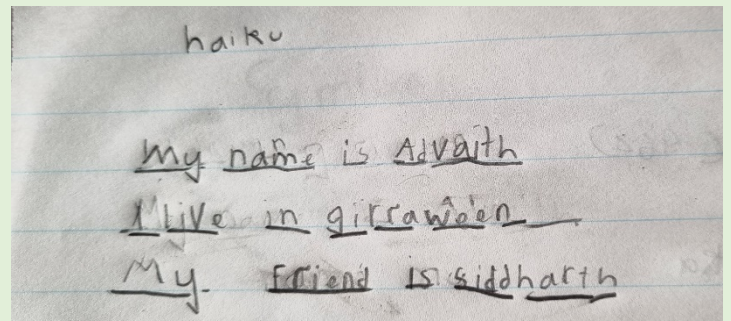 haiku
My name is Advaith
I live in girraween
My. friend is siddharth